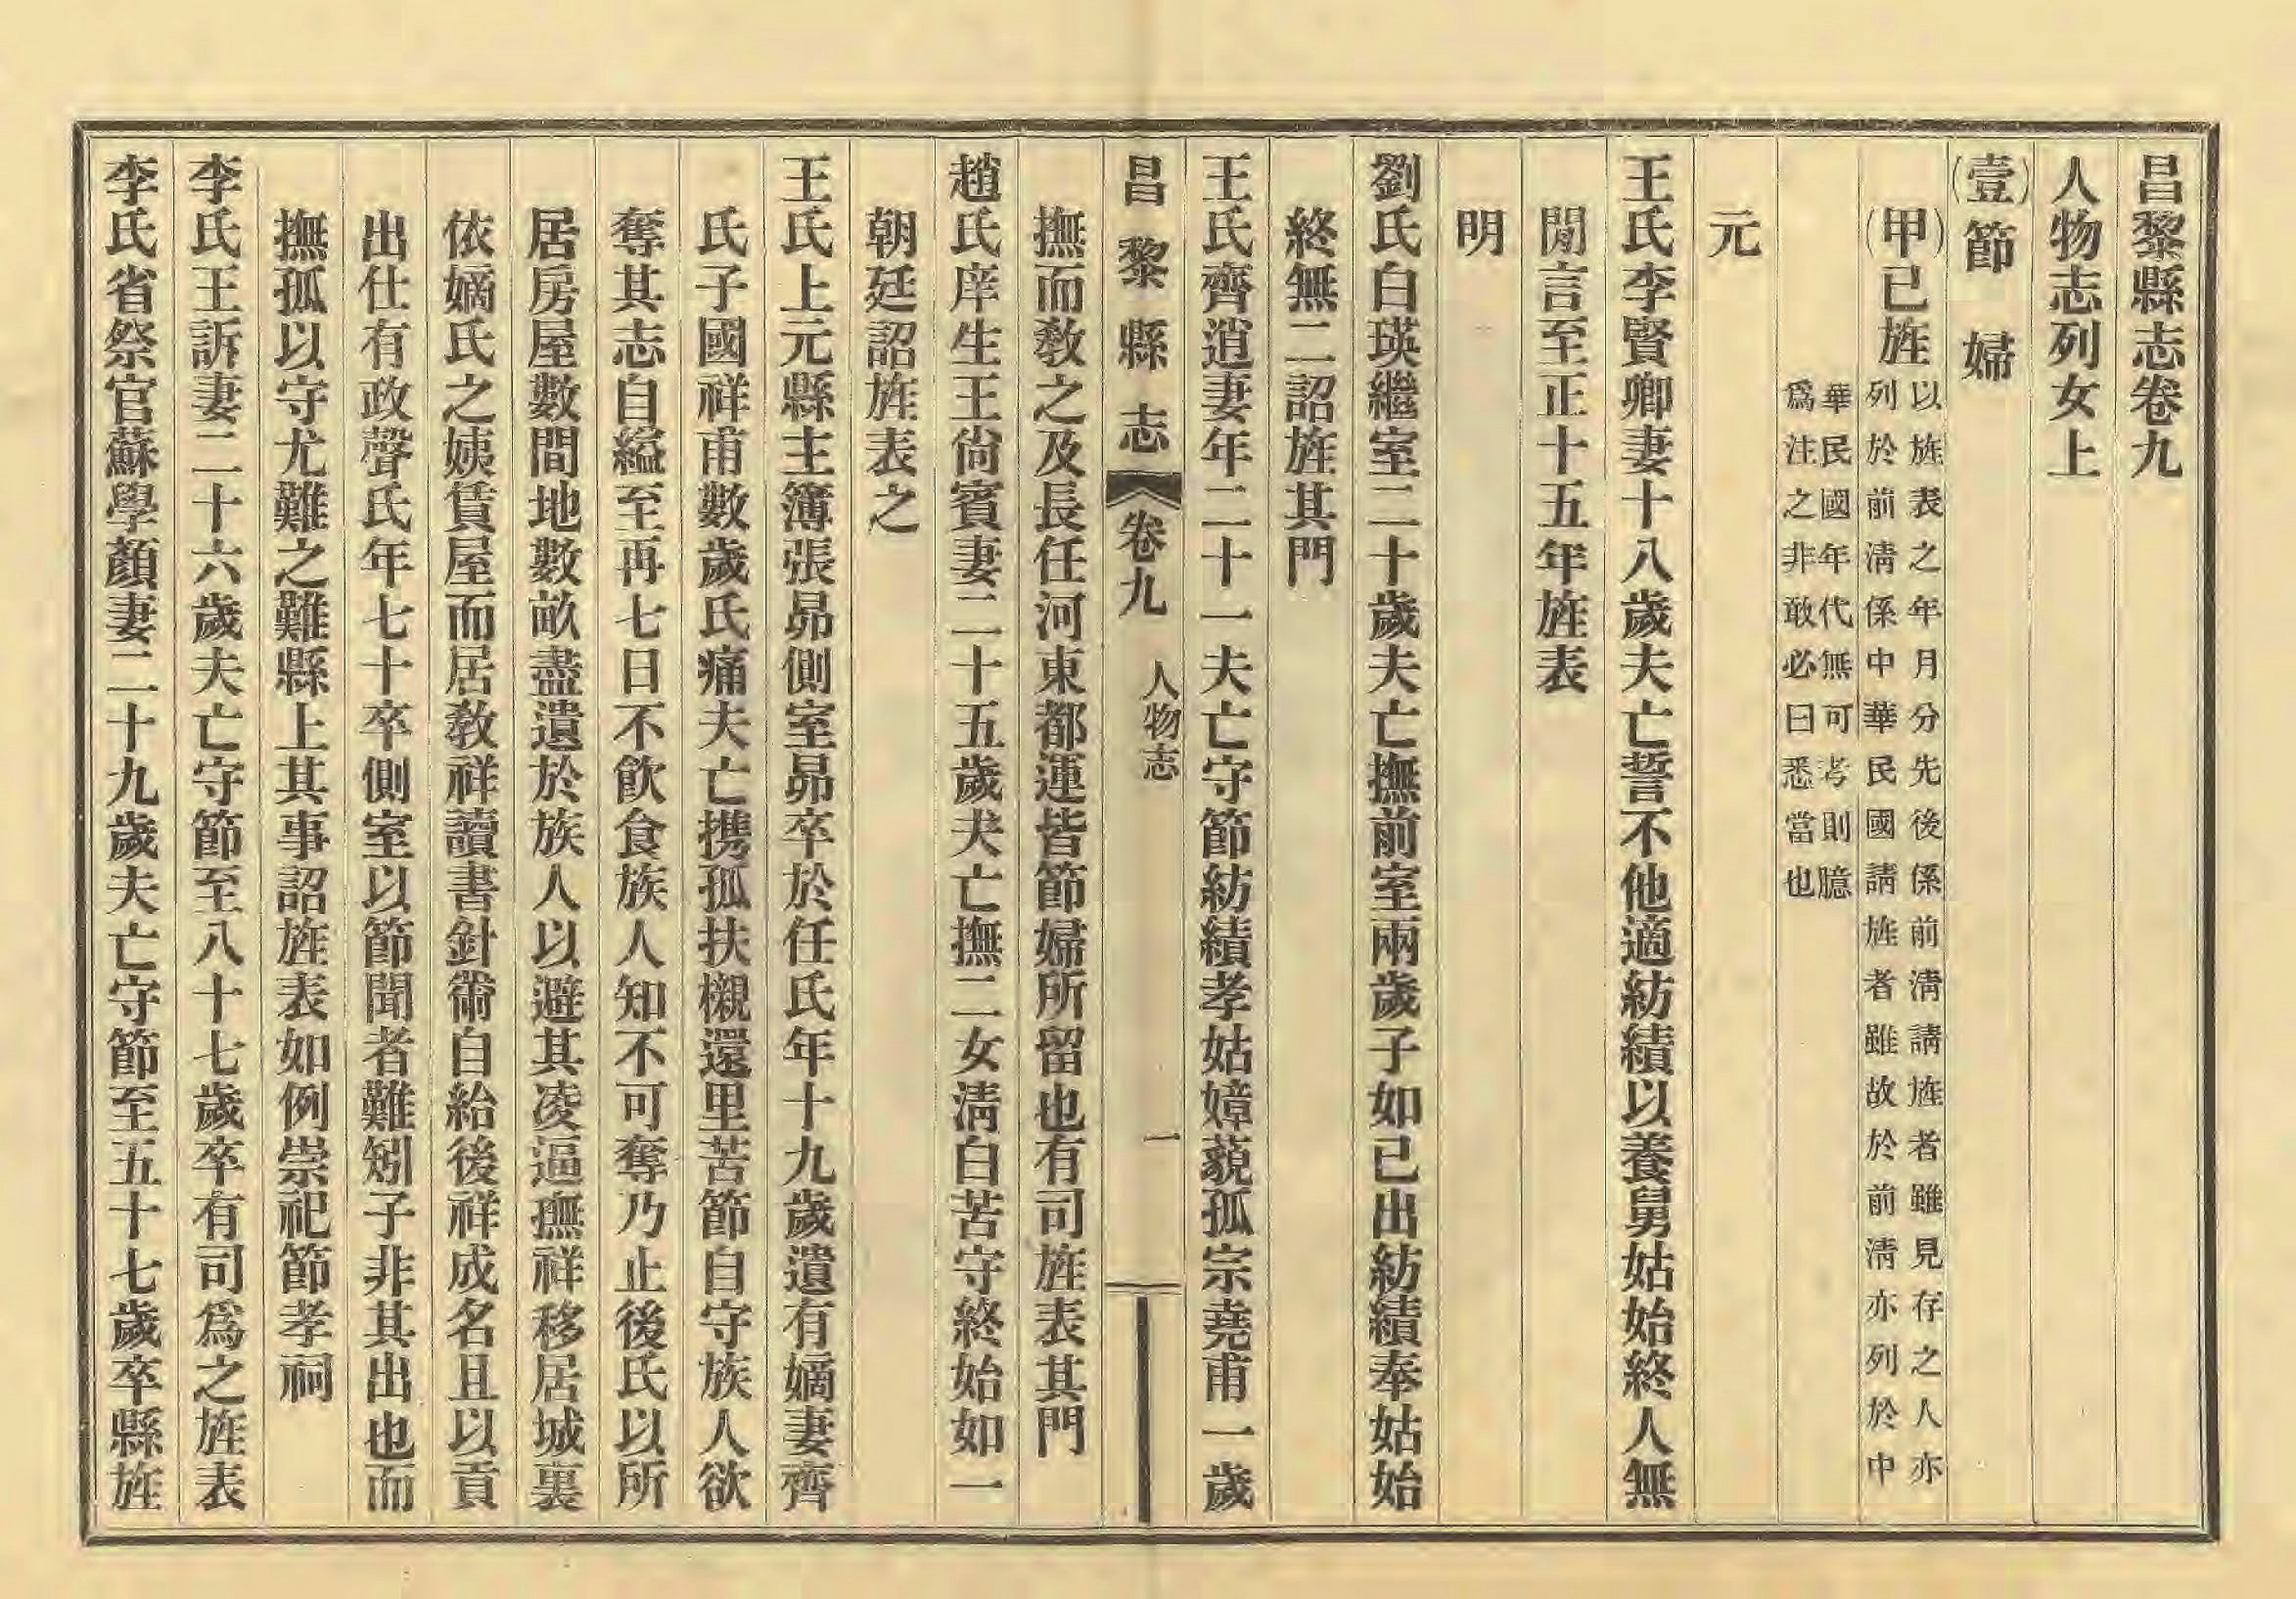 昌黎縣志卷九
人物志列女上
(壹)節婦
(甲)已旌
以旌表之年月分先後係前淸請旌者雖見存之人亦
列於前淸係中華民國請旌者雖故於前淸亦列於中
華民國年代無可考則臆
爲注之非敢必曰悉當也
元
王氏李賢卿妻十八歲夫亡誓不他適紡績以養舅姑始終人無
閒言至正十五年旌表
明
劉氏白瑛繼室二十歲夫亡撫前室兩歲子如已出紡績奉姑始
終無二詔旌其門
王氏齊逍妻年二十一夫亡守節紡績孝姑嫜藐孤宗堯甫一歲
昌黎縣志 卷九 人物志 一
撫而敎之及長任河東都運皆節婦所留也有司旌表其門
趙氏庠生王尙賓妻二十五歲夫亡撫二女淸白苦守終始如一
朝廷詔旌表之
王氏上元縣主簿張昴側室昴卒於任氏年十九歲遺有嫡妻齊
氏子國祥甫數歲氏痛夫亡携孤扶櫬還里苦節自守族人欲
奪其志自縊至再七日不飮食族人知不可奪乃止後氏以所
居房屋數間地數畝盡遺於族人以避其凌逼撫祥移居城裏
依嫡氏之姨賃屋而居敎祥讀書針黹自給後祥成名且以貢
出仕有政聲氏年七十卒側室以節聞者難矧子非其出也而
撫孤以守尤難之難縣上其事詔旌表如例崇祀節孝祠
李氏王訴妻二十六歲夫亡守節至八十七歲卒有司爲之旌表
李氏省祭官蘇學顏妻二十九歲夫亡守節至五十七歲卒縣旌